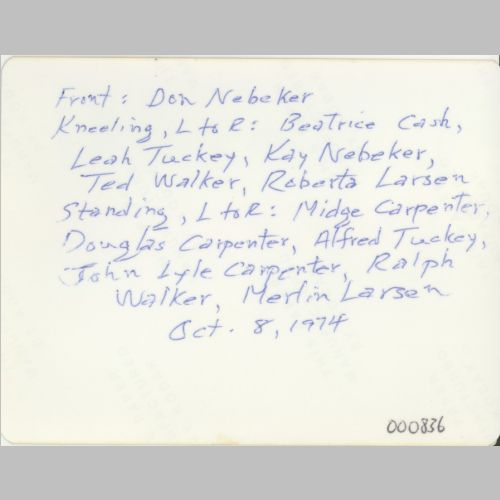 Front: Don Nebeker
Kneeling, L to R: Beatrice Cash,
Leah Tuckey, Kay Nebeker,
Ted Walker, Roberta Larsen
Standing, L to R: Midge Carpenter,
Douglas Carpenter, Alfred Tuckey,
John Lyle Carpenter, Ralph
Walker, Merlin Larsen
Oct. 8, 1974
000836